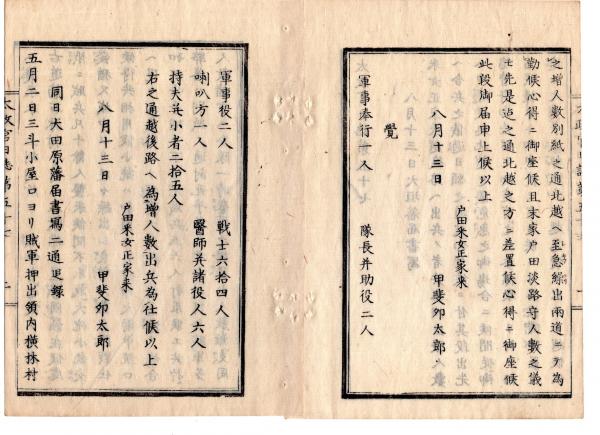 之増人數別紙之通北越ヘ至急繰出兩道ニテ為
勤候心得ニ御座候且末家戸田淡路守人數之儀
モ先是迠之通北越之方ニ差置候心得ニ御座候
此段御届申上候以上
八月十三日
戸田采女正家来
甲斐夘太郎
覺
軍事奉行
一人
隊長并助役二人
軍事役二人
戦士六拾四人
喇叭方一人
醫師并諸役人六人
持夫并小者二拾五人
右之通越後路ヘ為増人數出兵為仕候以上
八月十三日
戸田采女正家来
甲斐夘太郎
同日大田原藩届書寫二通追録
五月二日三斗小屋口ヨリ賊軍押出領内横林村
太政官日誌第五十七